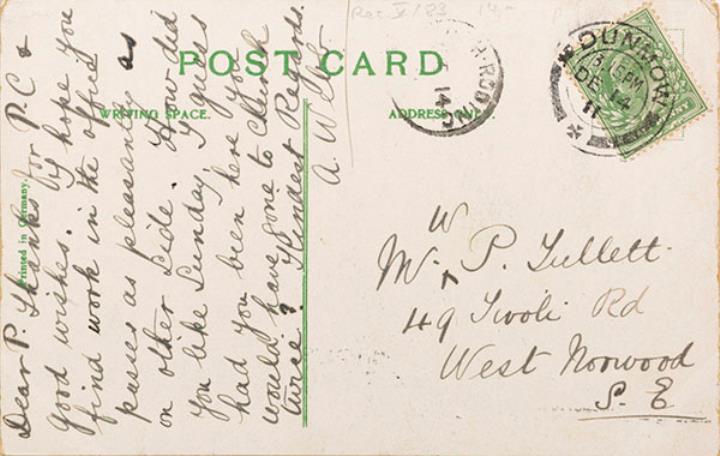 POST CARD
WRITING SPACE.
ADDRESS ONLY.
Printed in Germany.
Dear P. Thanks for P.C &
good wishes. I hope you
find work in the office
passes as pleasantly as
on other side. How did
you like Sunday, I guess
had you been here you
would have gone to church
twice? Kindest Regards.
A. Web
W
Mr ^ P. Tullett.
49 Tivoli Rd
West Norwood
S. E
DUNMOW
DE 14
11
14